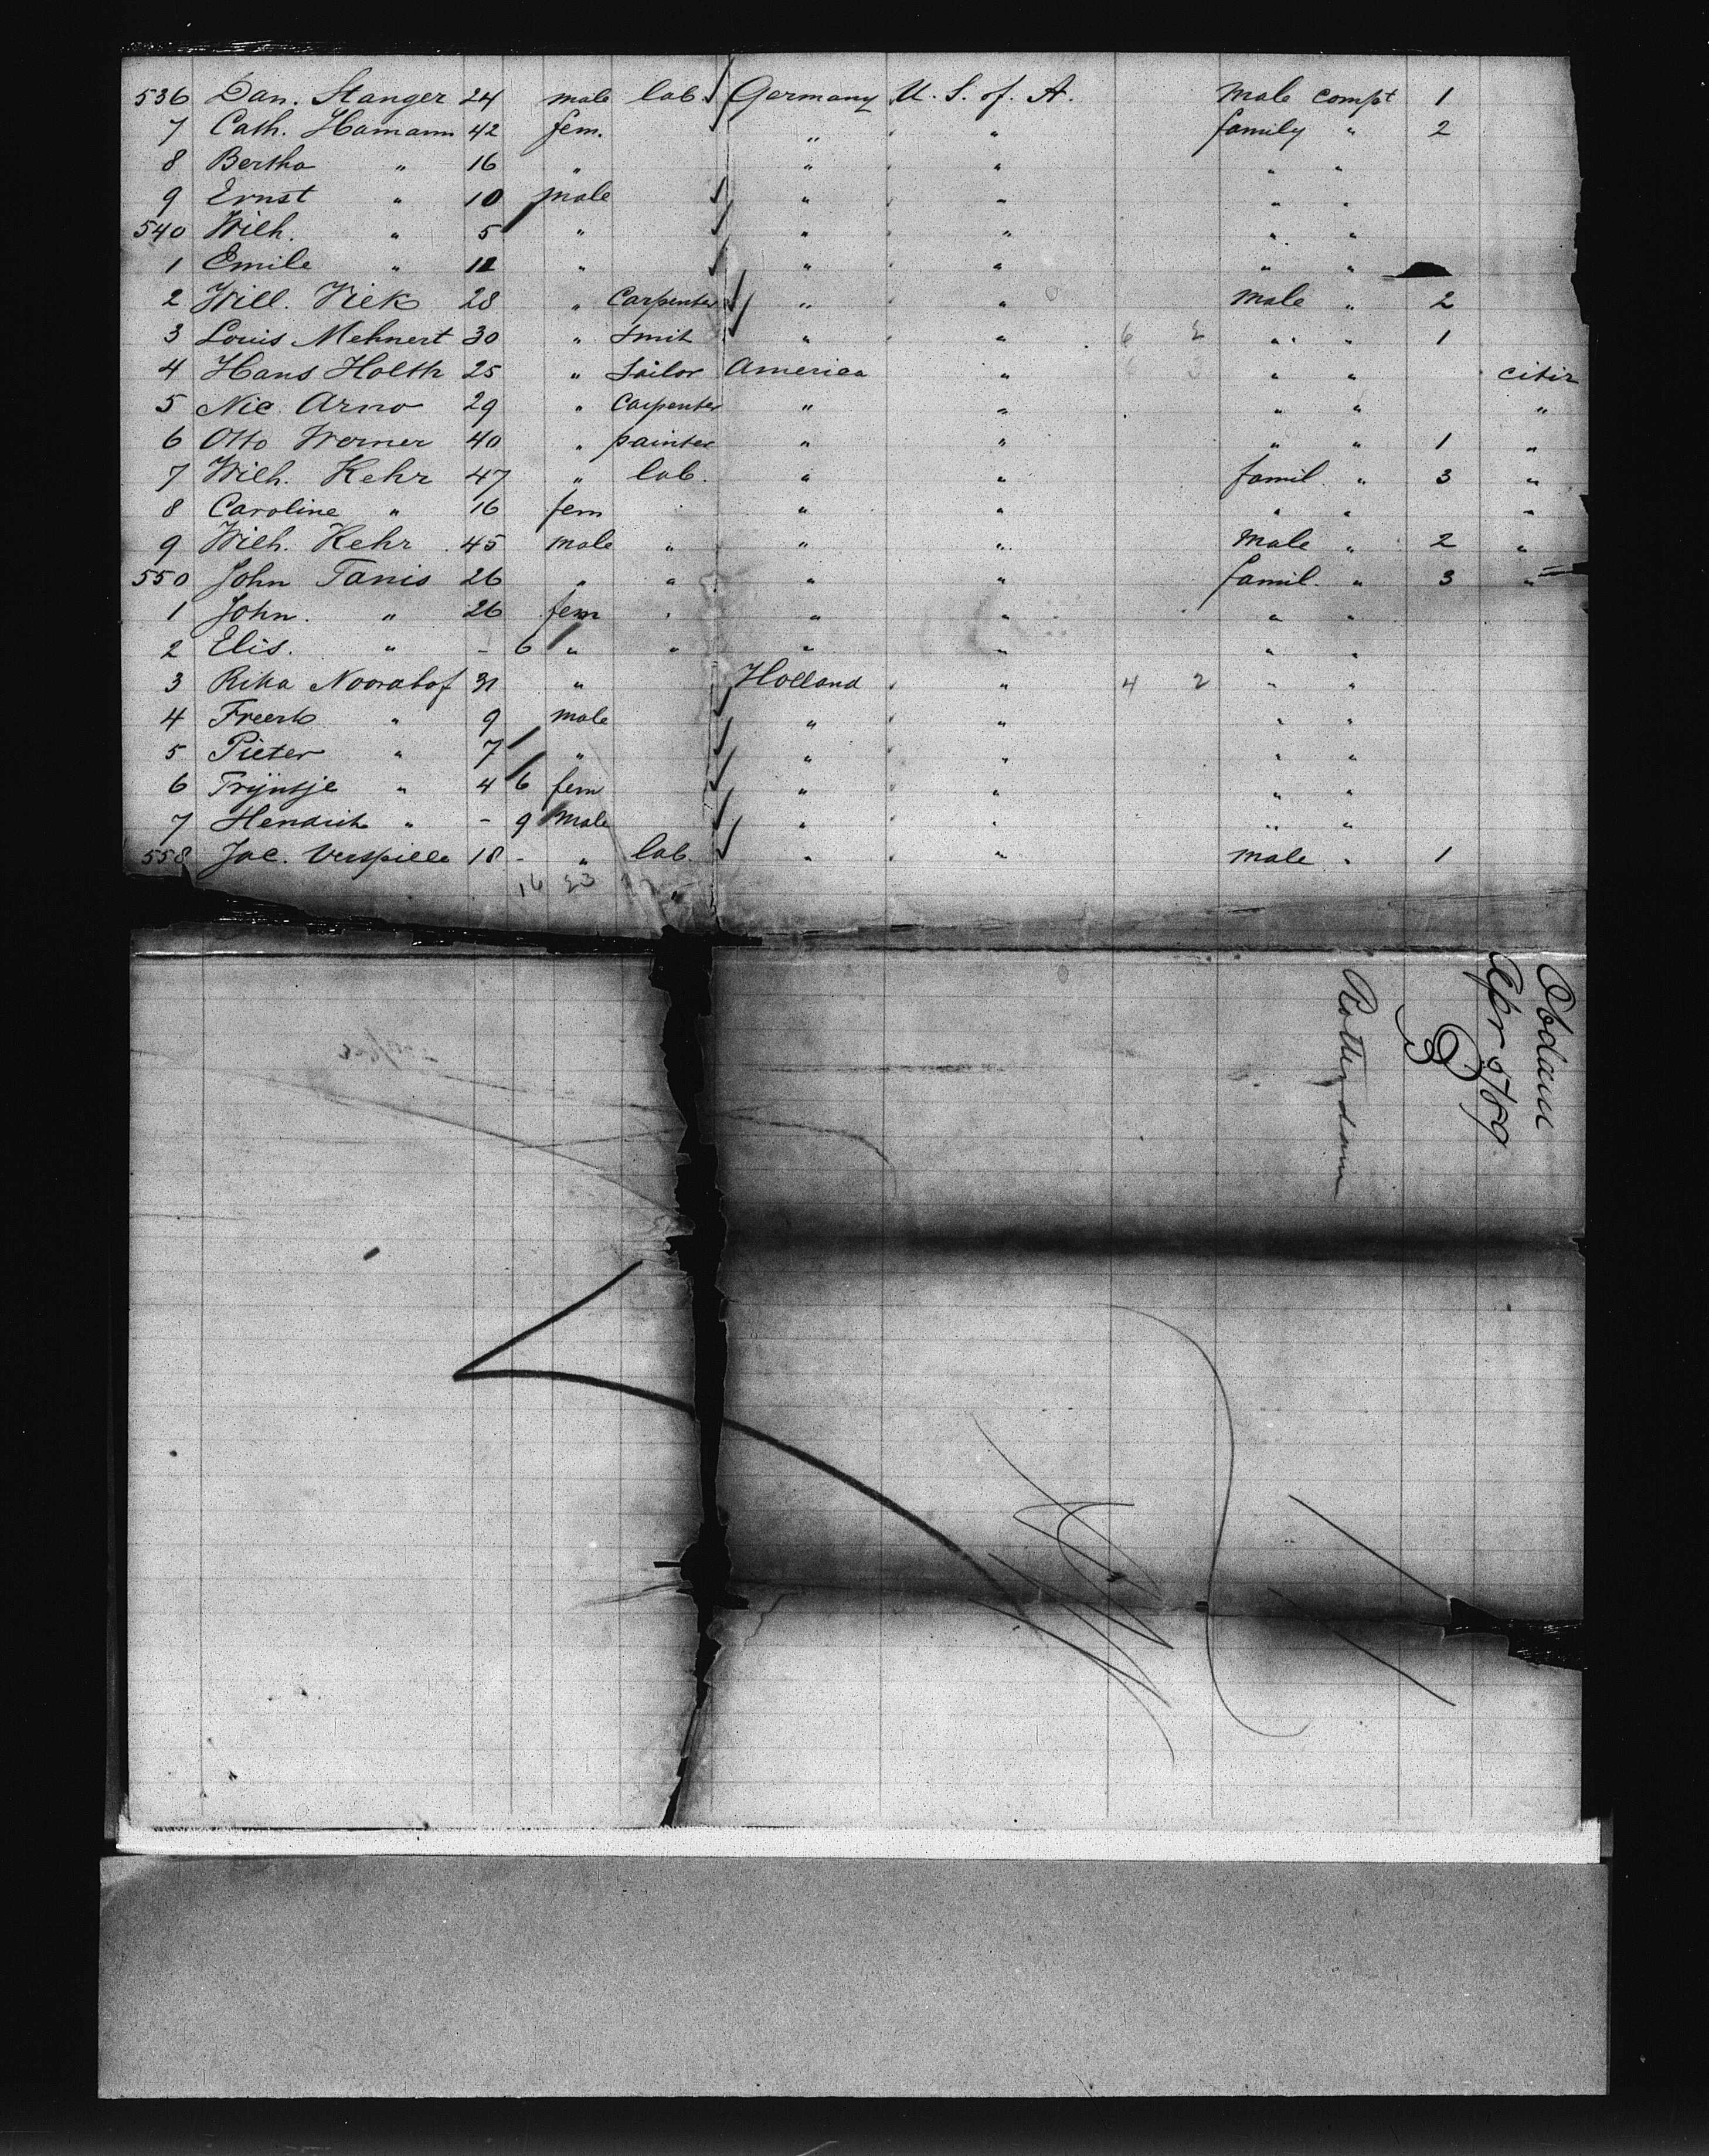 536 Dan. Stanger 24 male lab. Germany U. S. of. A. male compt 1
7 Cath. Hamann 42 fem. " " family " 2
8 Bertha " 16 " " " " "
9 Ernst " 10 male " " " "
540 Wilh. " 5 " " " " "
1 Emile " 11 " " " " "
2 Will. Viek 28 " Carpenter " " male " 2
3 Louis Mehnert 30 " Smit " " 6 2 " " 1
4 Hans Holth 25 " Sailor America " 6 3 " " citiz
5 Nic. Arno 29 " Carpenter " " " " "
6 Otto Werner 40 " painter " " " " 1 "
7 Wilh. Kehr 47 " lab. " " famil. " 3 "
8 Caroline " 16 fem " " " " "
9 Wilh. Kehr 45 male " " " male " 2 "
550 John Tanis 26 " " " " famil. " 3 "
1 John. " 26 fem " " " "
2 Elis. " - 6 " " " " " "
3 Rika 31 " Holland " 4 2 " "
4 Freerk " 9 male " " " "
5 Pieter " 7 " " " " "
6 Trijntje " 4 6 fem " " " "
7 Hendrik " - 9 male " " " "
558 Jac. Verspille 18 - " lab. " " male " 1
16 23 "
Obdam
Apr 5/89
Rotterdam